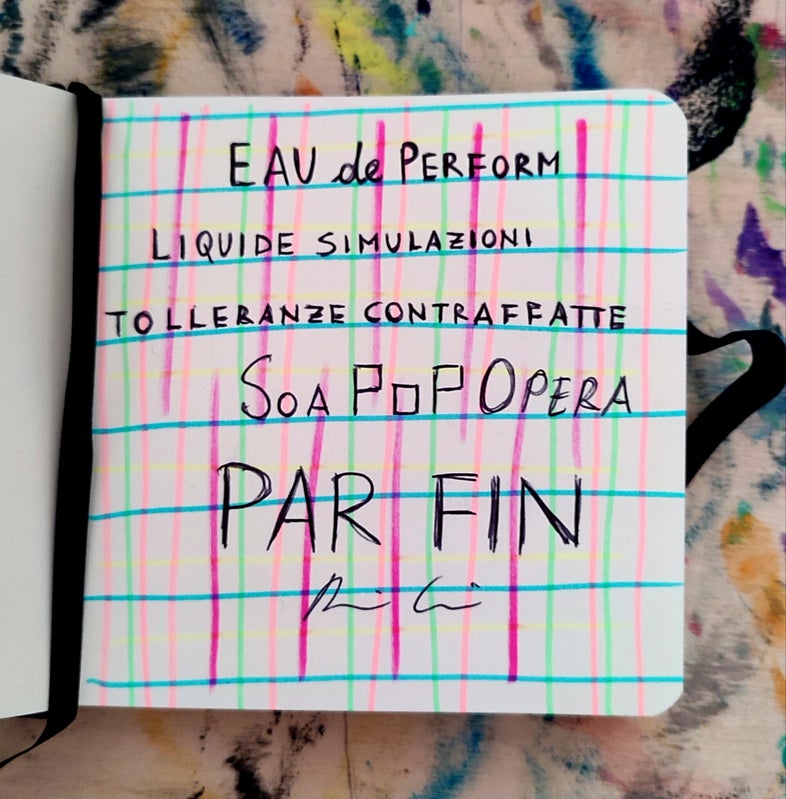 EAU de PERFORM
LIQUIDE SIMULAZIONI
TOLLERANZE CONTRAFFATTE
SOA POP OPERA
PAR FIN